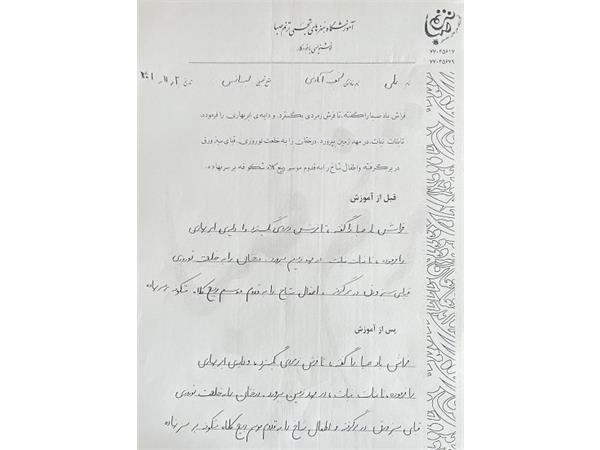 آموزشگاه هنرهای تجسمی ترنم صبا
خوشنویسی با خودکار
۷۷۰۴۵۶۱۷
۷۷۰۴۵۶۷۹
نام علی نام خانوادگی نجف آبادی مقطع تحصیلی لیسانس تاریخ
فراش باد صبا را گفته، تا فرش زمردی بگسترد. و دایه‌ی ابر بهاری را فرموده،
تا بنات نبات، در مهد زمین بپرورد. درختان را به خلعت نوروزی، قبای سبز ورق
در بر گرفته و اطفال شاخ را به قدوم موسم ربیع کلاه شکوفه بر سر نهاده.
قبل از آموزش
فراش باد صبا را گفته، تا فرش زمردی بگسترد و دایه‌ی ابر بهاری
را فرموده، تا بنات نبات در مهد زمین بپرورد. درختان را به خلعت نوروزی
قبای سبز ورق در بر گرفته و اطفال شاخ را به قدوم موسم ربیع کلاه شکوفه بر سر نهاده
پس از آموزش
فراش باد صبا را گفته، تا فرش زمردی بگسترد، و دایه‌ی ابر بهاری
را فرموده، تا بنات نبات، در مهد زمین بپرورد. درختان را به خلعت نوروزی
قبای سبز ورق در بر گرفته و اطفال شاخ را به قدوم موسم ربیع کلاه شکوفه بر سر نهاده